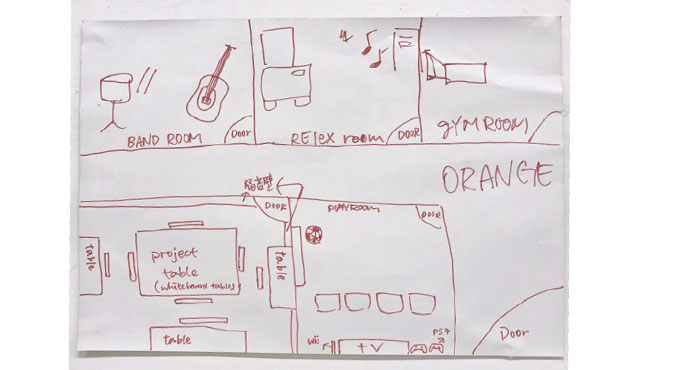 BAND ROOM
DOOR
RElEX room
DOOR
gYM ROOM
ORANGE
隔音壁
DOOR
PLAYROOM
DOOR
table
project
table
(whiteboard table)
table
table
wii
TV
PS4
Door